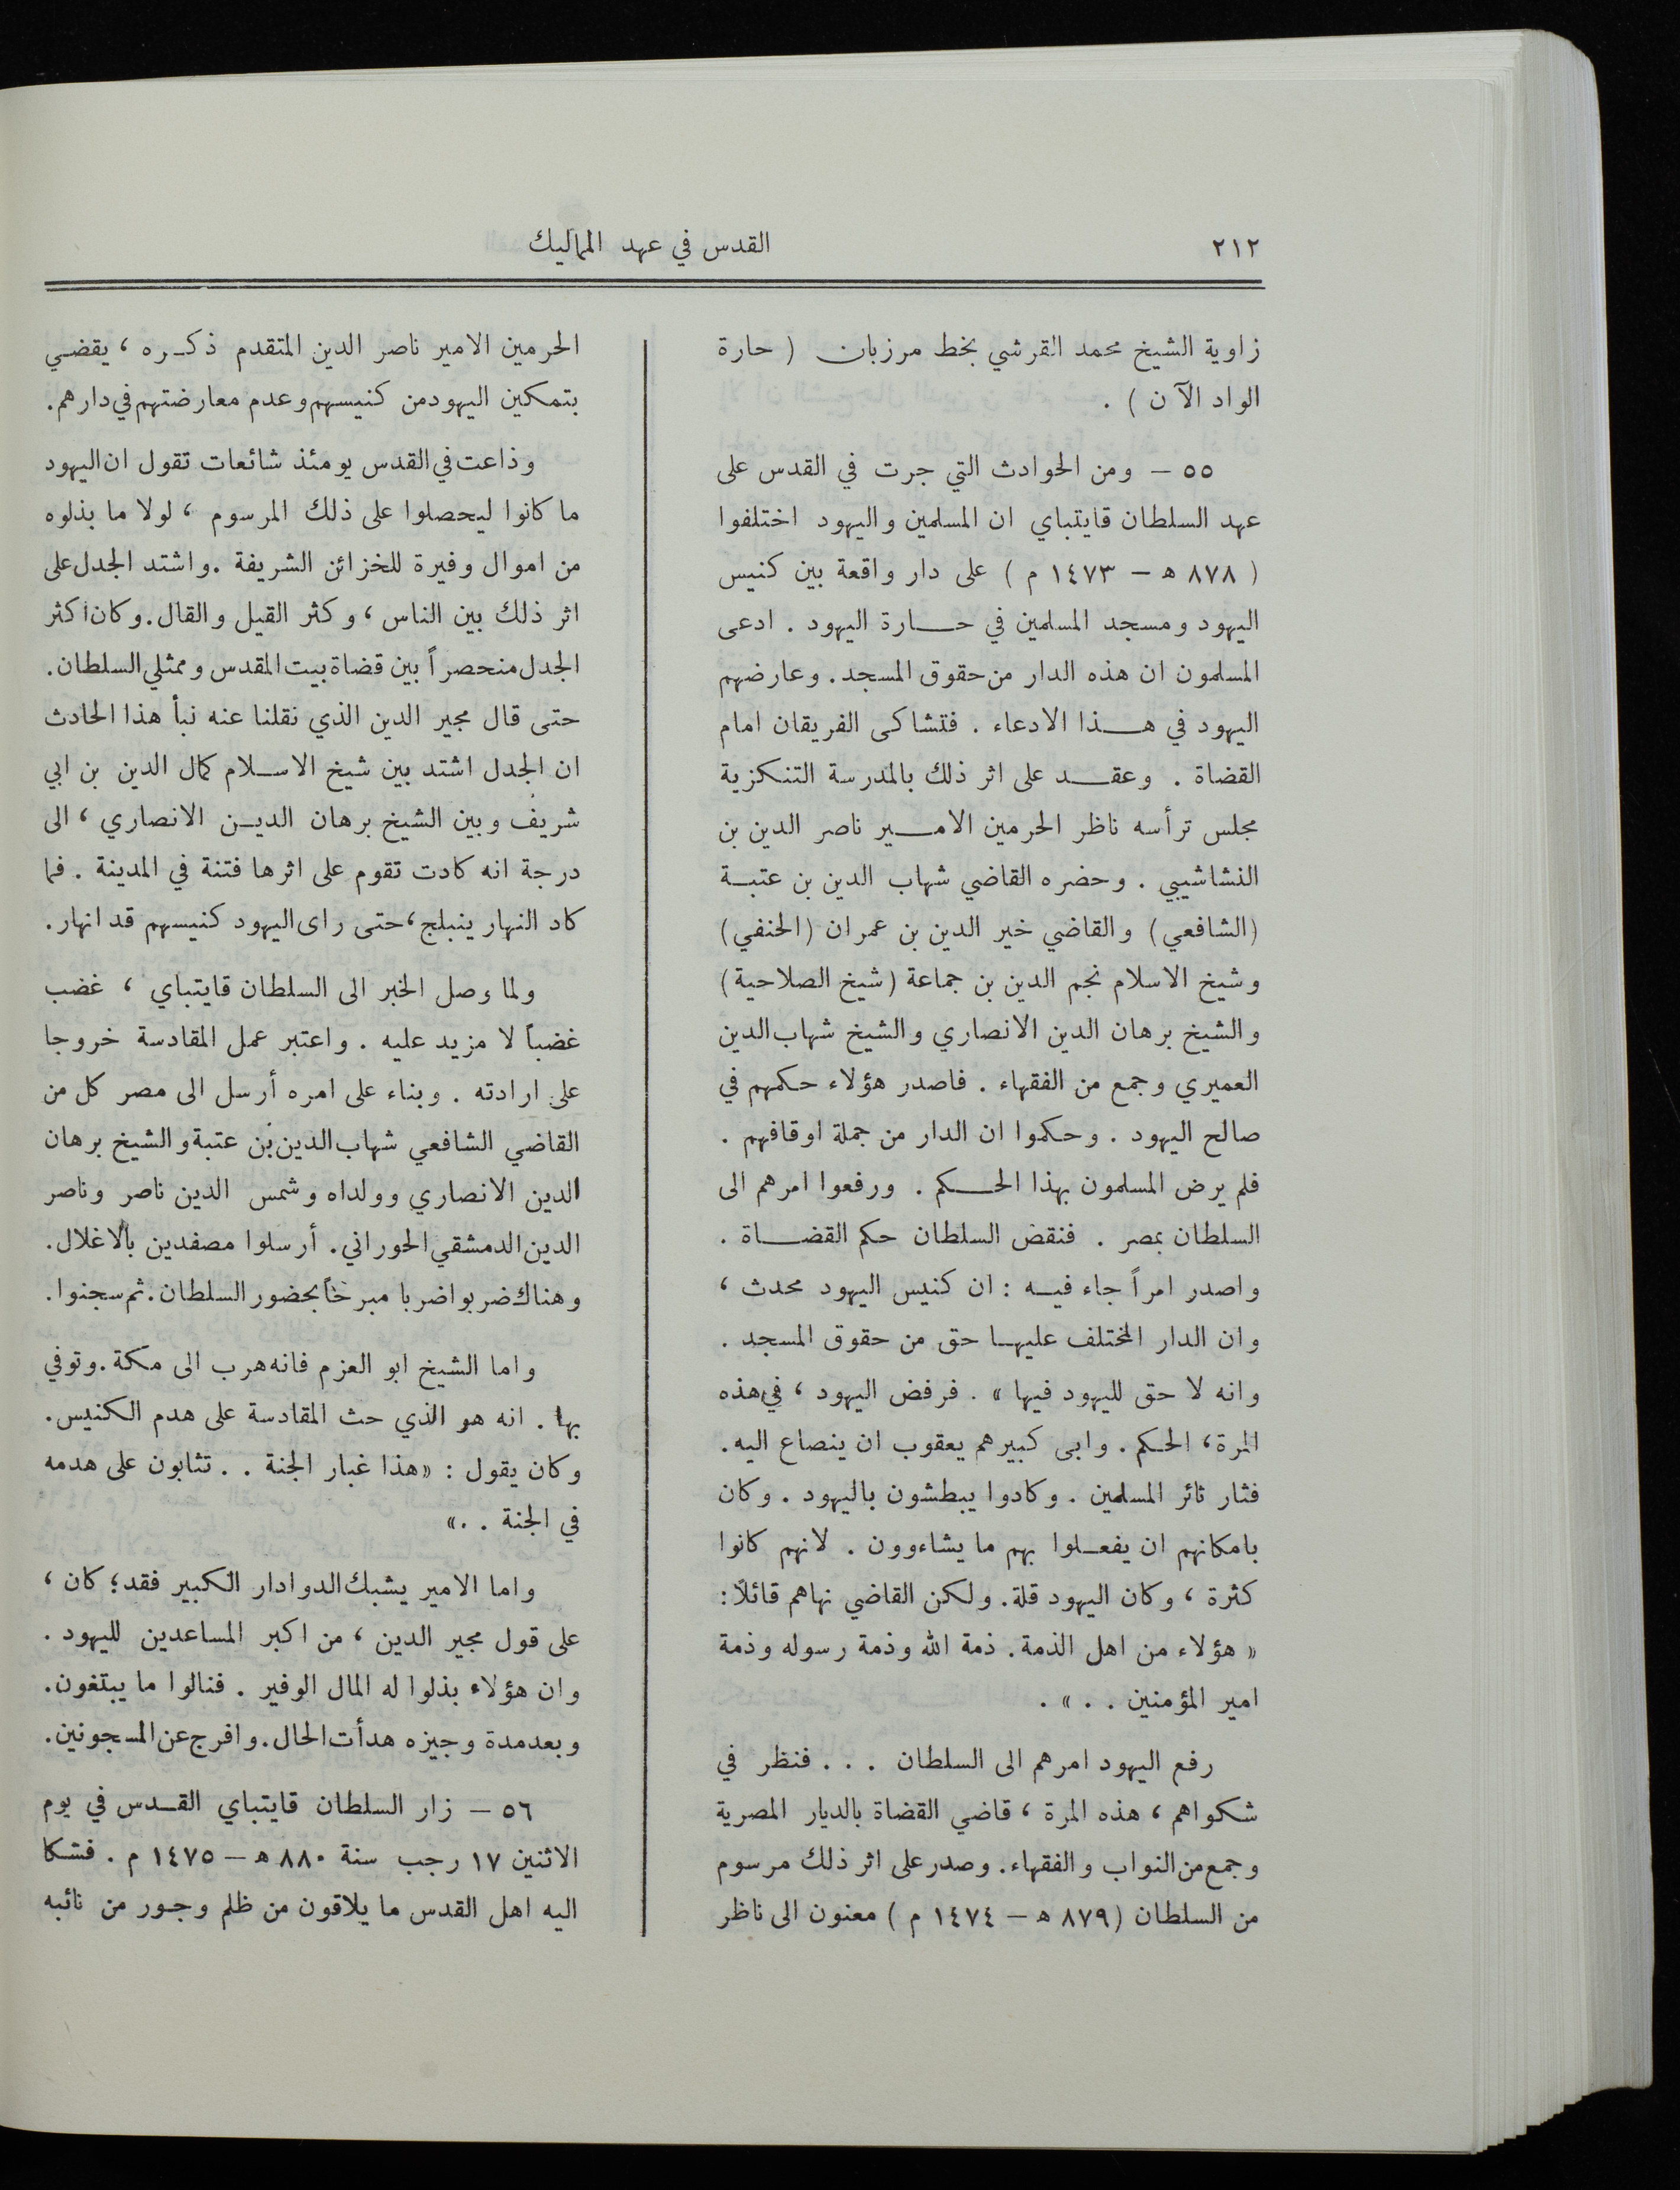 ٢١٢
القدس في عهد المماليك
زاوية الشيخ محمد القرشي بخط مرزبان ( حارة
الواد الآن ) .
٥٥ – ومن الحوادث التي جرت في القدس على
عهد السلطان قايتباي ان المسلمين واليهود اختلفوا
( ٨٧٨ هـ – ١٤٧٣ م ) على دار واقعة بين كنيس
اليهود ومسجد المسلمين في حارة اليهود . ادعى
المسلمون ان هذه الدار من حقوق المسجد . وعارضهم
اليهود في هذا الادعاء . فتشاكى الفريقان امام
القضاة . وعقد على اثر ذلك بالمدرسة التنكزية
مجلس ترأسه ناظر الحرمين الامير ناصر الدين بن
النشاشيبي . وحضره القاضي شهاب الدين بن عتبة
(الشافعي) والقاضي خير الدين بن عمران (الحنفي)
وشيخ الاسلام نجم الدين بن جماعة (شيخ الصلاحية)
والشيخ برهان الدين الانصاري والشيخ شهاب الدين
العميري وجمع من الفقهاء . فاصدر هؤلاء حكمهم في
صالح اليهود . وحكموا ان الدار من جملة اوقافهم .
فلم يرض المسلمون بهذا الحكم . ورفعوا امرهم الى
السلطان بمصر . فنقض السلطان حكم القضاة .
واصدر امراً جاء فيه : ان كنيس اليهود محدث ،
وان الدار المختلف عليها حق من حقوق المسجد .
وانه لا حق لليهود فيها » . فرفض اليهود ، في هذه
المرة ، الحكم . وابى كبيرهم يعقوب ان ينصاع اليه .
فثار ثائر المسلمين . وكادوا يبطشون باليهود . وكان
بامكانهم ان يفعلوا بهم ما يشاءوون . لانهم كانوا
كثرة ، وكان اليهود قلة . ولكن القاضي نهاهم قائلاً :
« هؤلاء من اهل الذمة . ذمة الله وذمة رسوله وذمة
امير المؤمنين . . » .
رفع اليهود امرهم الى السلطان . . . فنظر في
شكواهم ، هذه المرة ، قاضي القضاة بالديار المصرية
وجمع من النواب والفقهاء . وصدر على اثر ذلك مرسوم
من السلطان (٨٧٩ هـ – ١٤٧٤ م ) معنون الى ناظر
الحرمين الامير ناصر الدين المتقدم ذكره ، يقضي
بتمكين اليهود من كنيسهم وعدم معارضتهم في دارهم .
وذاعت في القدس يومئذ شائعات تقول ان اليهود
ما كانوا ليحصلوا على ذلك المرسوم ، لولا ما بذلوه
من اموال وفيرة للخزائن الشريفة . واشتد الجدل على
اثر ذلك بين الناس ، وكثر القيل والقال . وكان اكثر
الجدل منحصراً بين قضاة بيت المقدس وممثلي السلطان .
حتى قال مجير الدين الذي نقلنا عنه نبأ هذا الحادث
ان الجدل اشتد بين شيخ الاسلام كمال الدين بن ابي
شريف وبين الشيخ برهان الدين الانصاري ، الى
درجة انه كادت تقوم على اثرها فتنة في المدينة . فما
كاد النهار ينبلج ، حتى راى اليهود كنيسهم قد انهار .
ولما وصل الخبر الى السلطان قايتباي ، غضب
غضباً لا مزيد عليه . واعتبر عمل المقادسة خروجا
على ارادته . وبناء على امره أرسل الى مصر كل من
القاضي الشافعي شهاب الدين بن عتبة والشيخ برهان
الدين الانصاري وولداه وشمس الدين ناصر وناصر
الدين الدمشقي الحوراني . أرسلوا مصفدين بالاغلال .
وهناك ضربوا ضربا مبرحاً بحضور السلطان . ثم سجنوا .
واما الشيخ ابو العزم فانه هرب الى مكة . وتوفي
بها . انه هو الذي حث المقادسة على هدم الكنيس .
وكان يقول : « هذا غبار الجنة . . تثابون على هدمه
في الجنة . . »
واما الامير يشبك الدوادار الكبير فقد ؛ كان ،
على قول مجير الدين ، من اكبر المساعدين لليهود .
وان هؤلاء بذلوا له المال الوفير . فنالوا ما يبتغون .
وبعد مدة وجيزه هدأت الحال . وافرج عن المسجونين .
٥٦ – زار السلطان قايتباي القدس في يوم
الاثنين ١٧ رجب سنة ٨٨٠ هـ – ١٤٧٥ م . فشكا
اليه اهل القدس ما يلاقون من ظلم وجور من نائبه